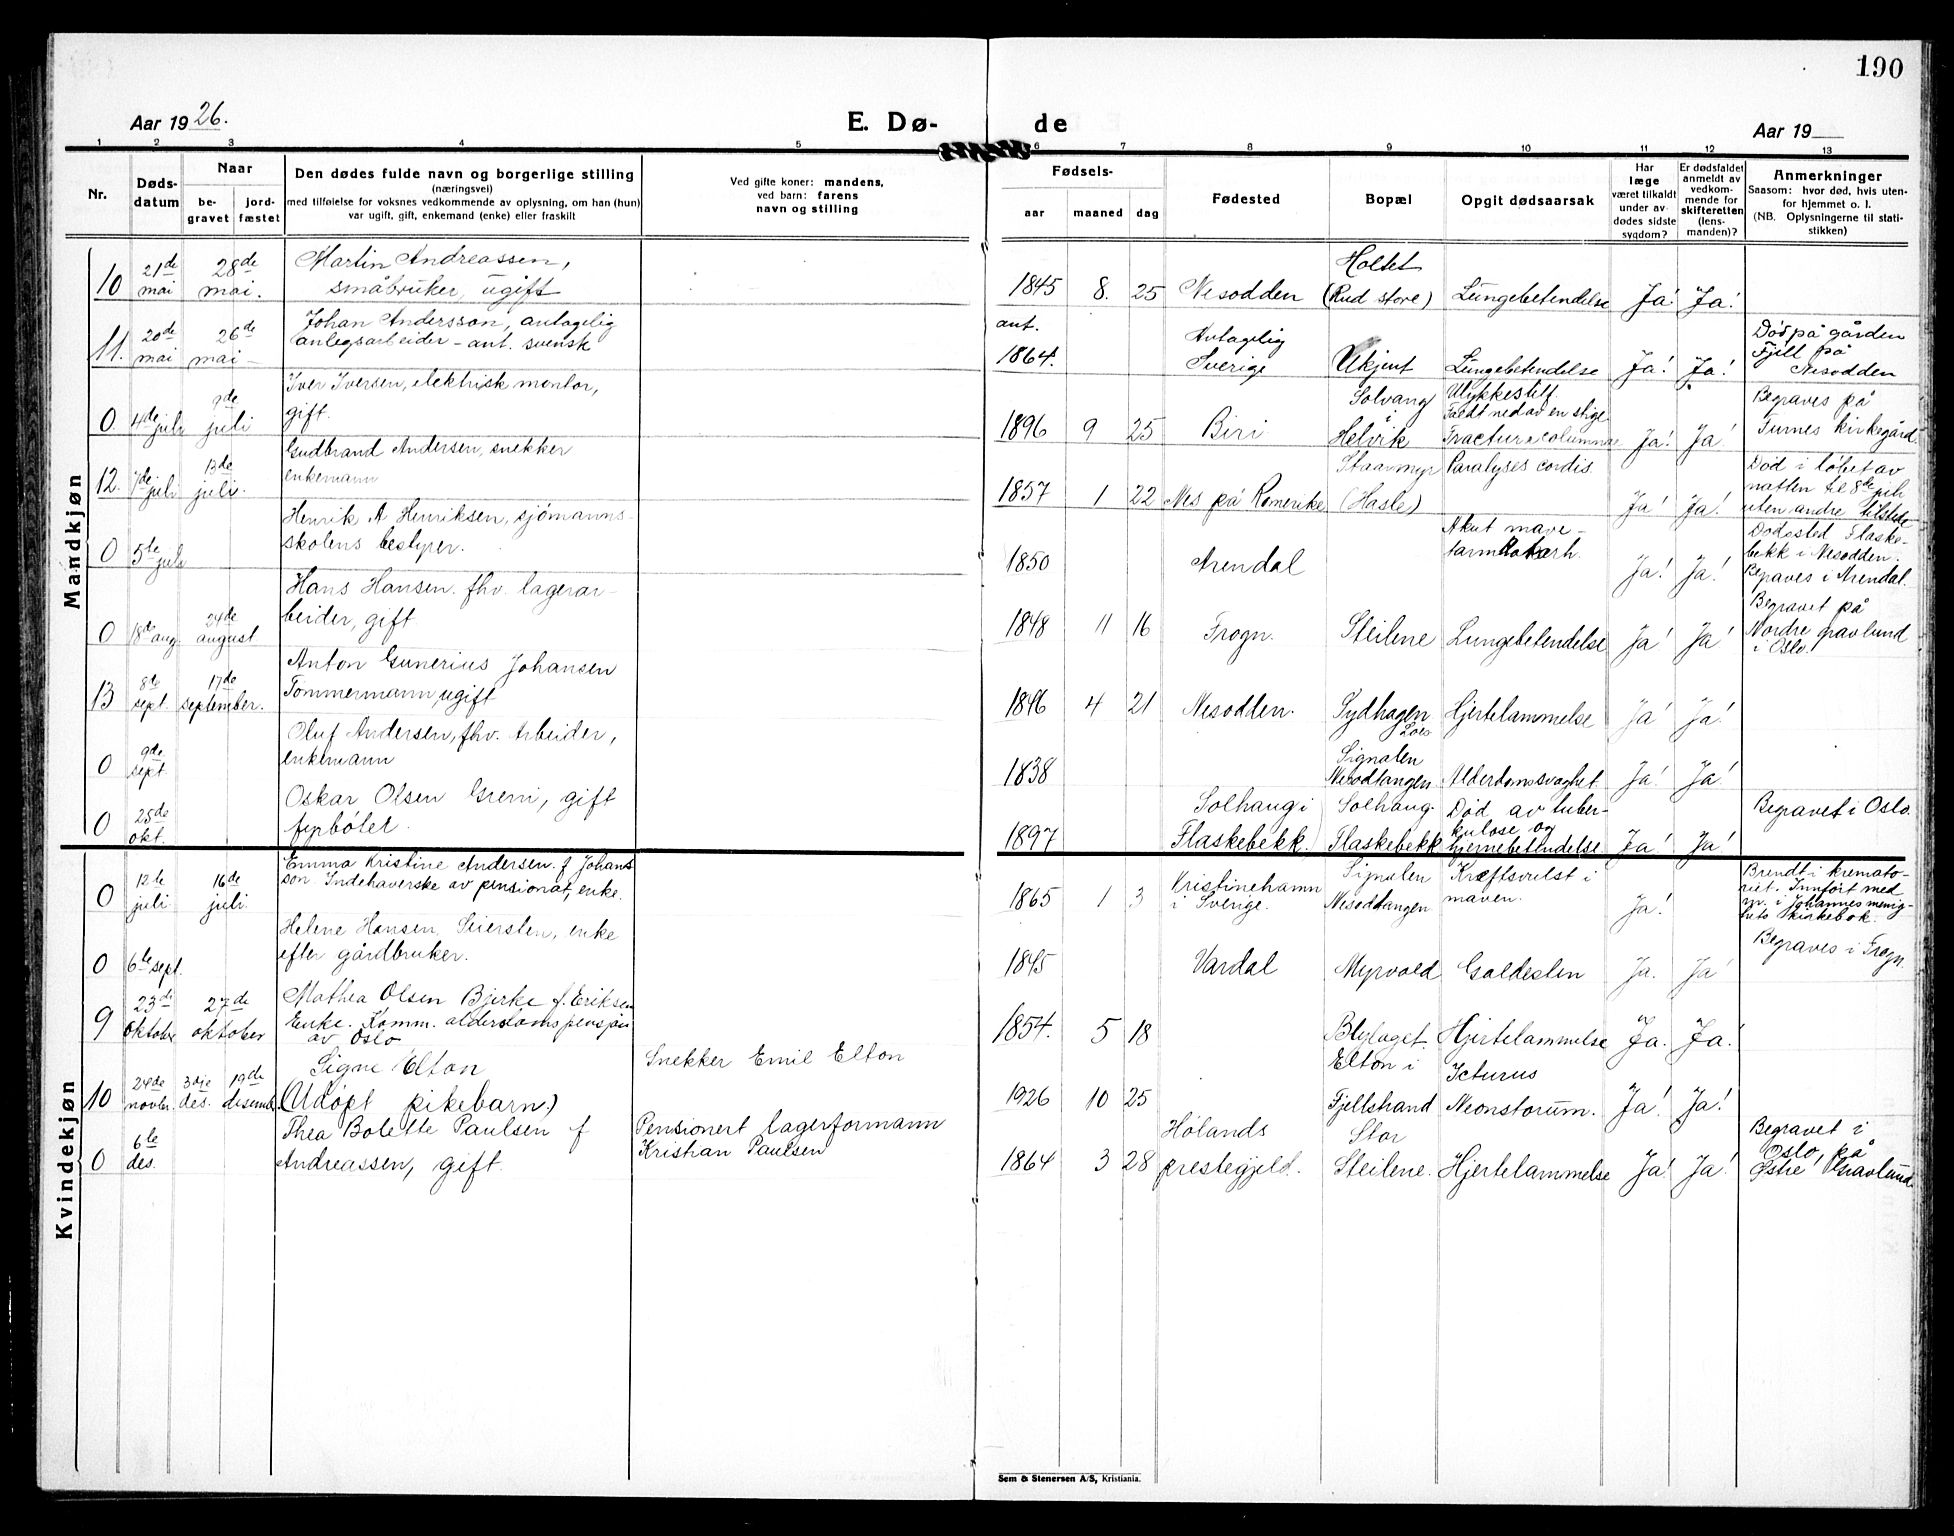 190
Aar 1926.
E. Dø-
de
Aar 19
1 2 3 4 5 6 7 8 9 10 11 12 13
Nr.
Døds-
datum
Naar
be-
gravet
jord-
fæstet
Den dødes fulde navn og borgerlige stilling
(næringsvei)
med tilføielse for voksnes vedkommende av oplysning, om han (hun)
var ugift, gift, enkemand (enke) eller fraskilt
Ved gifte koner: mandens,
ved barn: farens
navn og stilling
Fødsels-
aar
maaned
dag
Fødested
Bopæl
Opgit dødsaarsak
Har
læge
været tilkaldt
under av-
dødes sidste
sygdom?
Er dødsfaldet
anmeldt av
vedkom-
mende for
skifteretten
(lens-
manden)?
Anmerkninger
Saasom: hvor død, hvis uten-
for hjemmet o. l.
(NB. Oplysningerne til stati-
stikken)
Mandkjøn
10 21de mai 28de mai. Martin Andreassen,
småbruker, ugift
1845 8. 25 Nesodden Holtet
(Rud store) Lungebetendelse Ja! Ja!
11. 20de mai 26de mai Johan Andersson, antagelig
anlegsarbeider - ant. svensk
ant.
1864. Antagelig
Sverige Ukjent Lungebetendelse Ja! Ja! Død på gården
Fjell på
Nesodden
0. 4de juli 9de juli Iver Iversen, elektrisk montør,
gift.
1896 9 25 Biri Solvang
i
Helvik Ulykkestilf.
Faldt ned av en stige.
Fractura columnae Ja! Ja! Begraves på
Furnes kirkegård
12. 7de juli 13de juli. Gudbrand Andersen, snekker
enkemann
1857 1 22 Nes på Romerike Staarmyr
(Hasle) Paralyses cordis Ja! Ja! Død i løbet av
natten til 8de juli
uten andre tilstede
0 5te juli Henrik A Henriksen, sjömanns-
skolens bestyrer.
1850 Arendal Akut mave-
tarmkatarh. Ja! Ja! Dødssted Flaske-
bekk i Nesodden.
Begraves i Arendal.
0 18de aug. 24de august Hans Hansen. fhv. lagerar-
beider, gift
1848 11 16 Frogn. Steilene Lungebetendelse Ja! Ja! Begravet på
Nordre gravlund
i Oslo.
13 8de sept. 17de september. Anton Gunerius Johansen
Tømmermann, ugift
1846 4 21 Nesodden. Sydhagen Hjertelammelse Ja! Ja!
0 9de sept. Oluf Andersen, fhv. Arbeider,
enkemann
1838 Signalen
Nesodtangen Alderdomsvaghet Ja! Ja!
0 25de okt. Oskar Olsen Greni, gift
fyrbøter.
1897 Solhaug i
Flaskebekk. Solhaug.
Flaskebekk Død av tuber-
kulose og
hjernebetendelse Ja! Ja! Begravet i Oslo.
Kvindekjøn
0 12te juli. 16de juli. Emma Kristine Andersen. f. Johans
son. Indehaverske av pensionat, enke.
1865 1 3 Kristinehamn
i Sverige. Signalen
Nesodtangen Kræftsvulst i
maven. Ja! Brendt i kremato-
riet. Innført med
nr. i Johannes menig-
hets kirkebok.
0 6te sept. Helene Hansen, Seiersten, enke
efter gårdbruker.
1845 Vardal Myrvold Galdesten Ja. Ja! Begraves i Frogn.
9 23di oktober 27de oktober Mathea Olsen Bjerke f. Eriksen
Enke. Komm. alderdoms pensjon
av Oslo
1854. 5 18 Blylaget. Hjertelammelse Ja. Ja!
10 24de novbr. 3dje des. 19de desemb. Signe Elton
(Adopt pikebarn.) Snekker Emil Elton
1926 10 25 Elton i
Fjellstrand Icturus
Neonstorum. Ja! Ja!
0 6te des. Thea Bolette Paulsen f
Andreassen, gift. Pensionert lagerformann
Kristian Paulsen
1864 3 28 Hølands
prestegjeld. Stor
Steilene. Hjertelammelse Ja! Ja! Begravet i
Oslo på
Østre Gravlund.
Sem & Stenersen A/S, Kristiania.